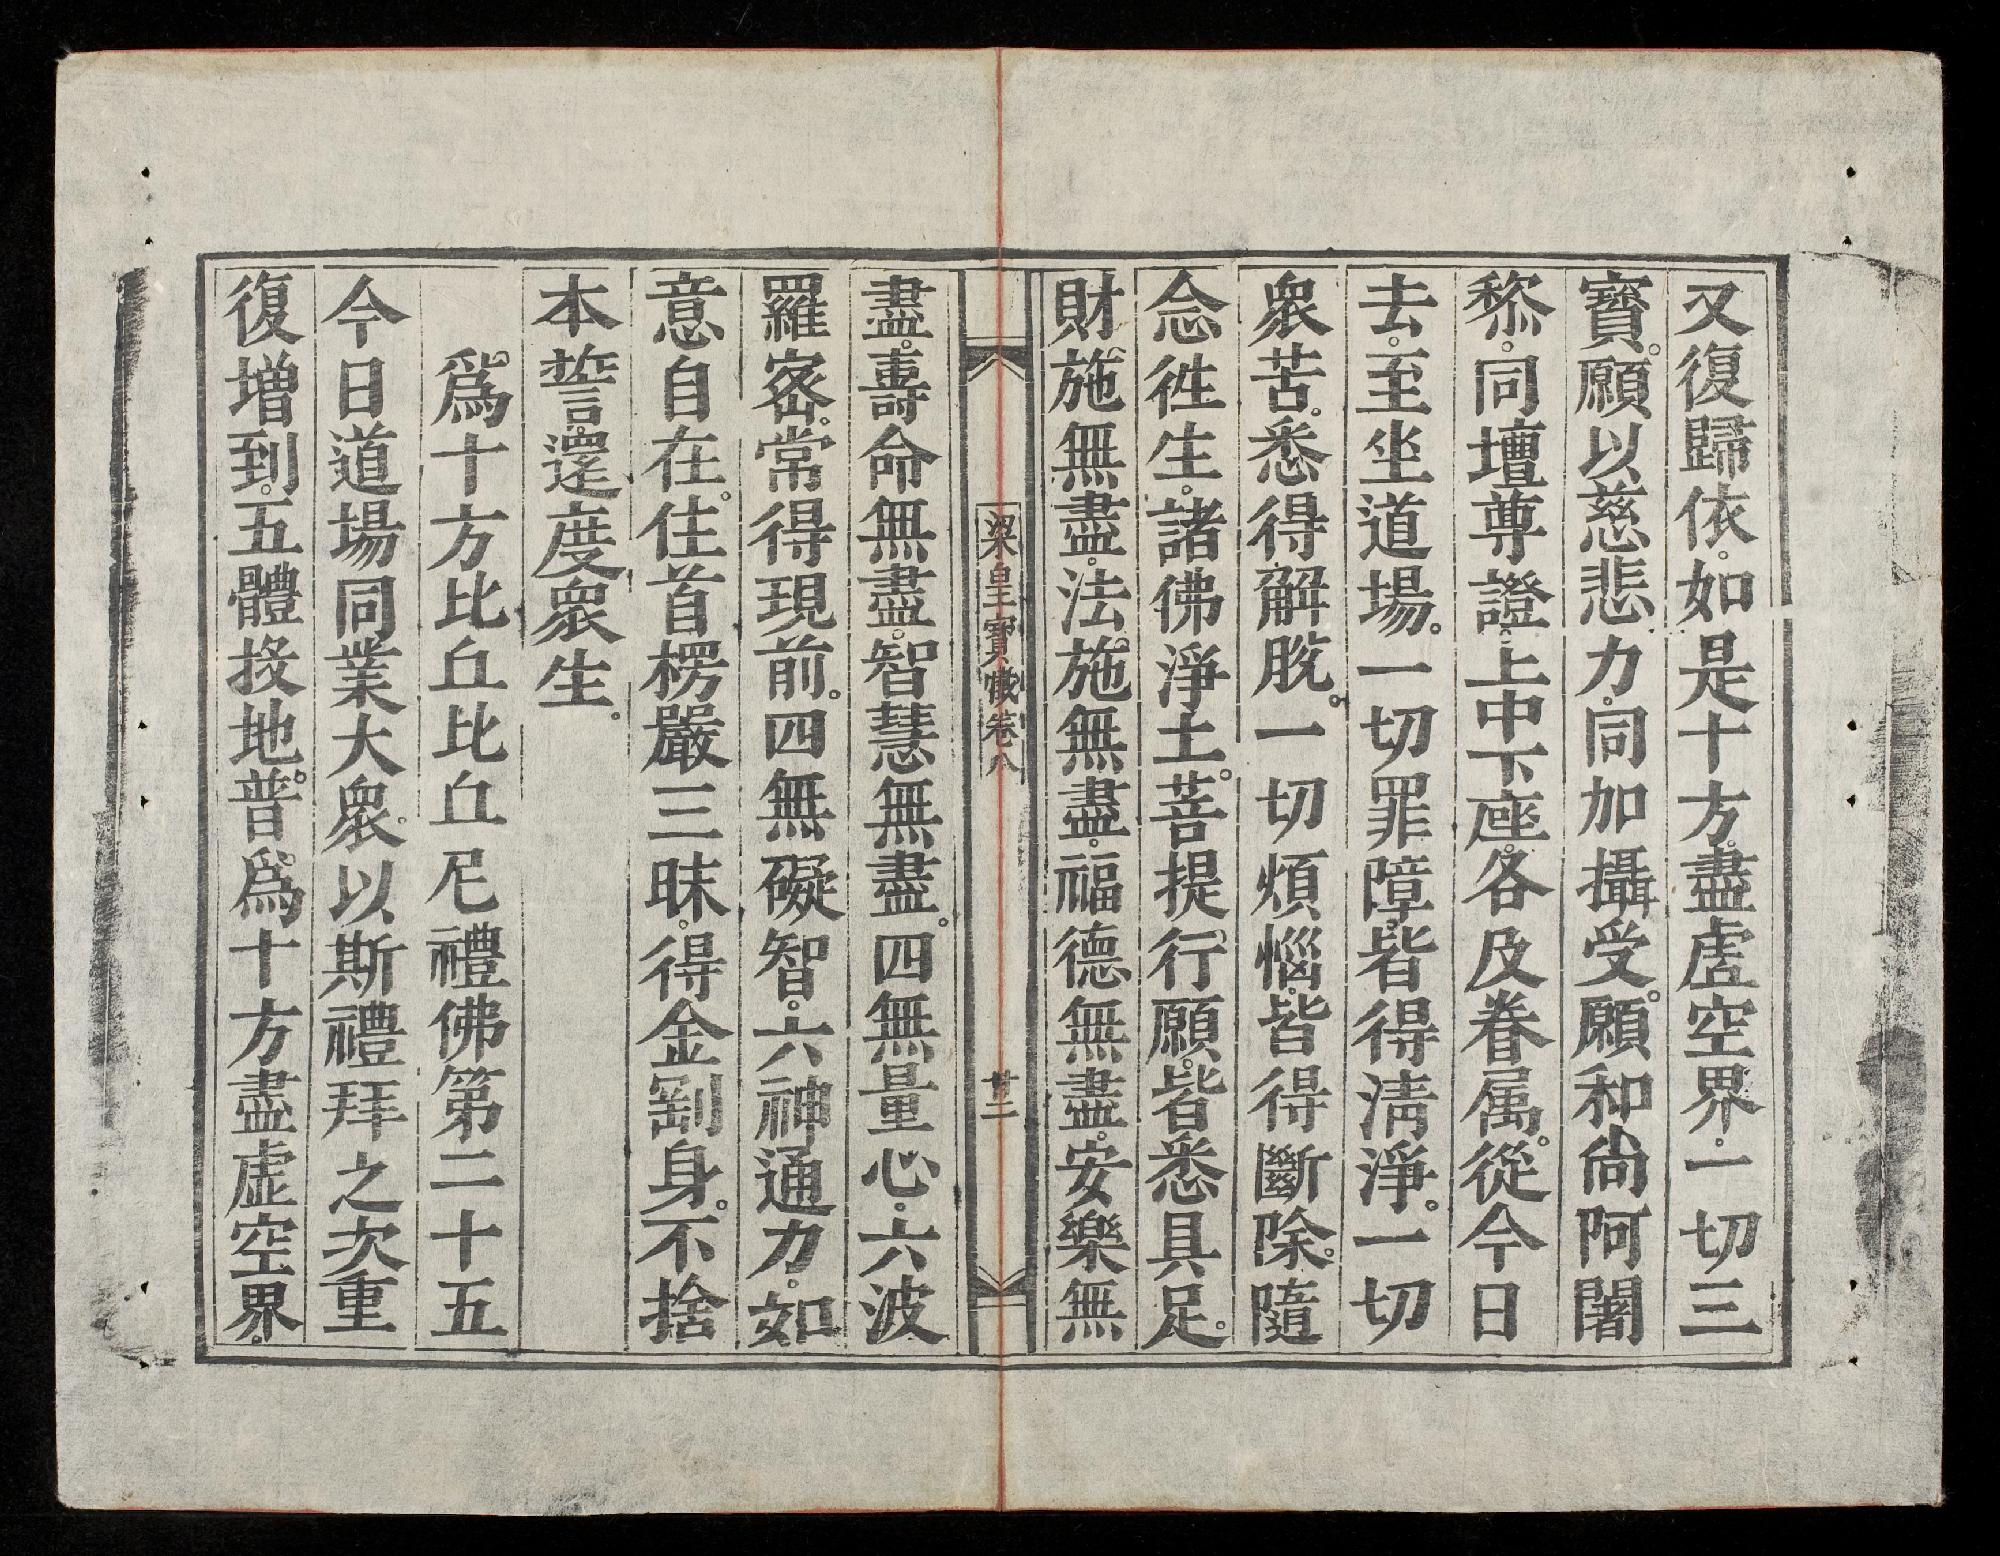 又復歸依。如是十方。盡虛空界。一切三
寶。願以慈悲力。同加攝受。願和尚阿闍
黎。同壇尊證。上中下座。各及眷属。從今日
去。至坐道場。一切罪障。皆得清淨。一切
衆苦。悉得解脫。一切煩惱。皆得斷除。隨
念徃生。諸佛淨土。菩提行願。皆悉具足。
財施無盡。法施無盡。福德無盡。安樂無
梁皇寶懺卷八
廿二
盡。壽命無盡。智慧無盡。四無量心。六波
羅宻。常得現前。四無礙智。六神通力。如
意自在。住首楞嚴三昧。得金剛身。不捨
本誓。還度衆生。
爲十方比丘比丘尼禮佛第二十五
今日道場同業大衆。以斯禮拜之次重
復增到。五體投地。普爲十方盡虛空界。